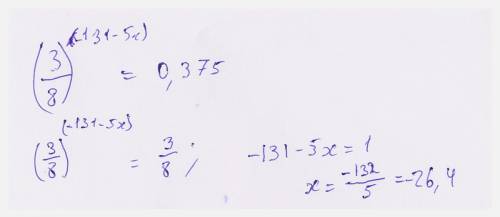 (3/8)^(-131-5x) = 0,375
(3/8)^(-131-5x) = 3/8 ; -131-5x = 1
x = -132/5 = -26,4